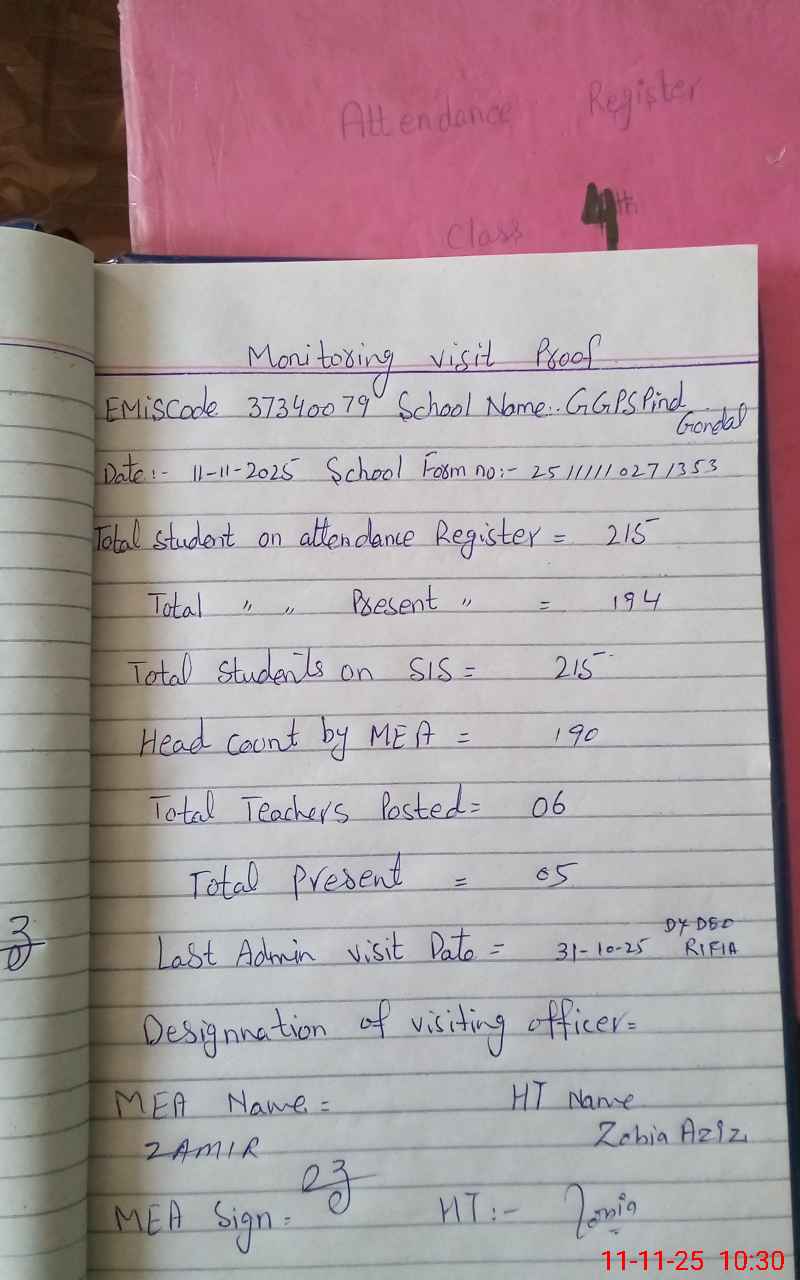 Attendance Register
Class 4th
Monitoring visit Proof
EMiSCode 37340079 School Name:. GGPS Pind
Gondal
Date:- 11-11-2025 School Form no:- 25111110271353
Total student on attendance Register = 215
Total " " Present " = 194
Total Students on SIS = 215
Head Count by MEA = 190
Total Teachers Posted = 06
Total present = 05
DY DEO
Last Admin visit Date = 31-10-25 RIFIA
Designnation of visiting officer =
MEA Name = HT Name
ZAMIR Zobia Aziz
MEA Sign = HT:-
11-11-25 10:30